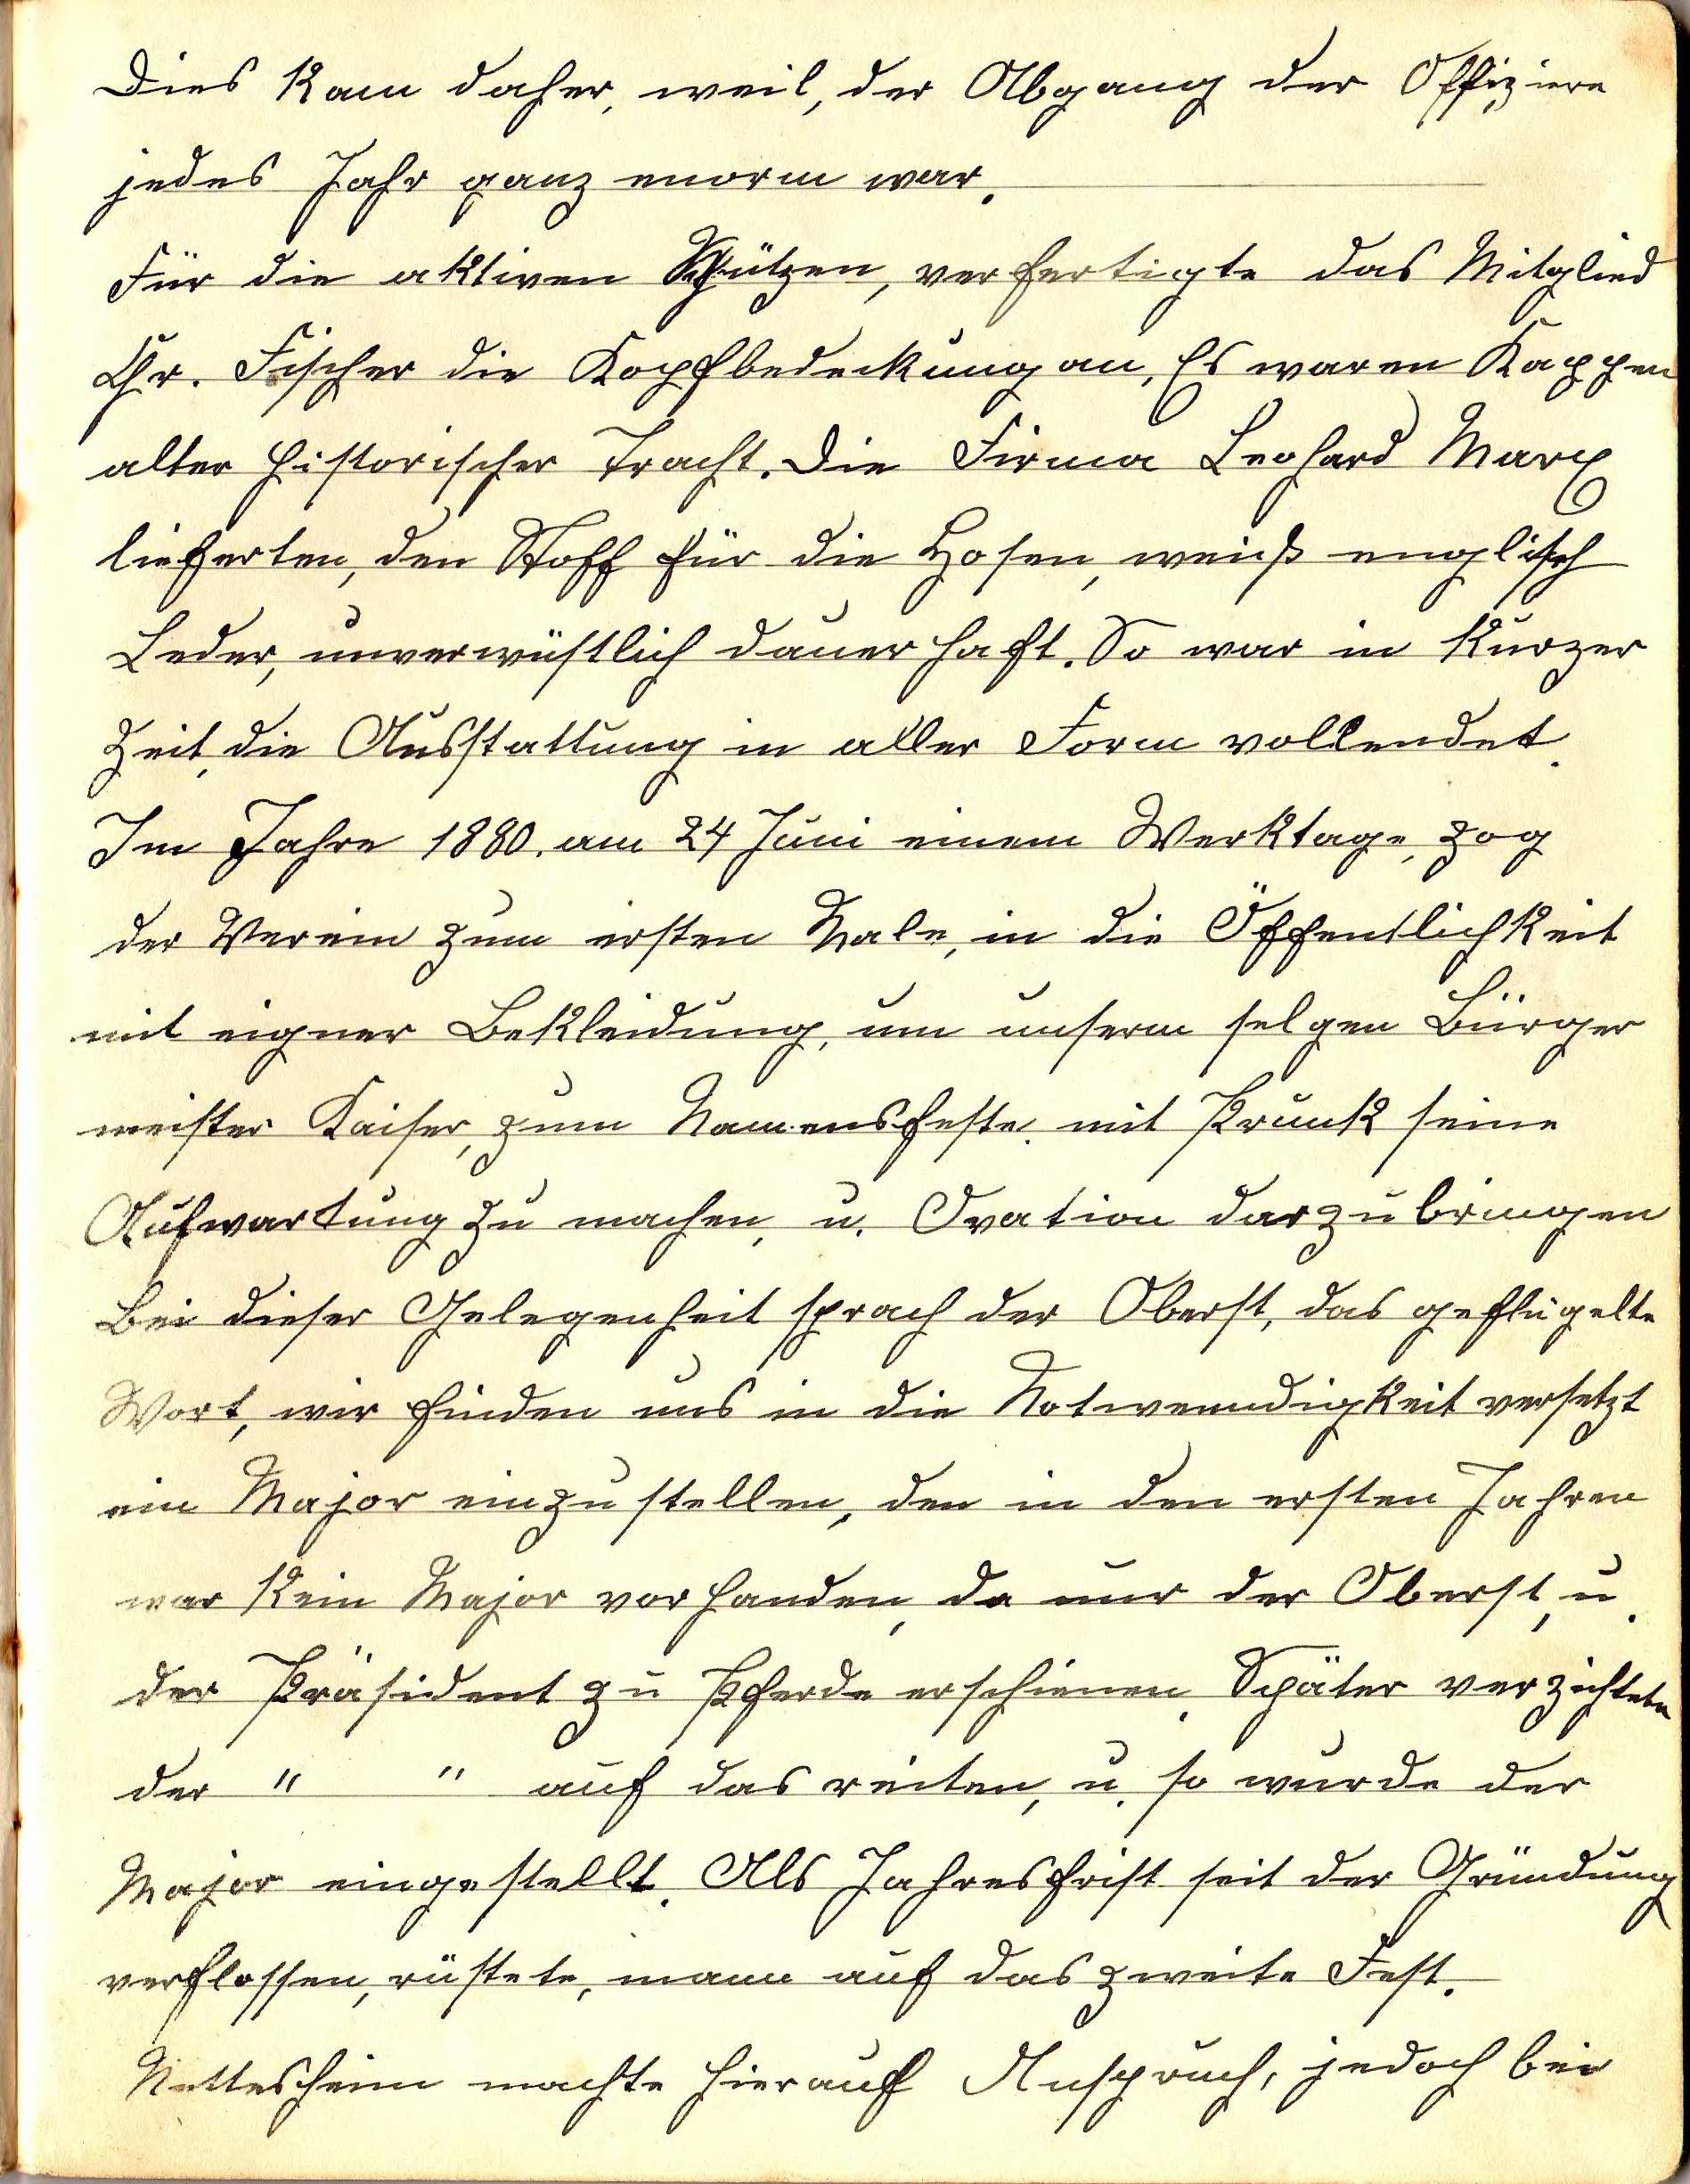 Dies kam daher, weil, der Abgang der Offiziere
jedes Jahr ganz enorm war.
Für die aktiven Schützen, verfertigte das Mitglied
Chr. Fischer die Kopfbedeckung an, Es waren Kappen
alter historischer Tracht. Die Firma Leohard Marx
lieferten, den Stoff für die Hosen, weiß englisch
Leder, unverwüstlich dauerhaft. So war in kurzer
Zeit, die Ausstattung in aller Form vollendet.
Im Jahre 1880. am 24 Juni einem Werktage, zog
der Verein zum ersten Male, in die Öffentlichkeit
mit eigner Bekleidung, um unserm selgen Bürger
meister Kaiser, zum Namensfeste. mit Prunk seine
Aufwartung zu machen, u. Ovation darzubringen
Bei dieser Gelegenheit sprach der Oberst, das geflügelte
Wort, wir finden uns in die Notwenndigkeit versetzt
ein Major einzustellen, den in den ersten Jahren
war kein Major vorhanden, da nur der Oberst, u.
der Präsident zu Pferde erschienen. Später verzichtete
der " " auf das reiten, u. so wurde der
Major eingestellt. Als Jahresfrist seit der Gründung
verflossen, rüstete, mann auf das zweite Fest.
Nettesheim machte hierauf Anspruch, jedoch bei